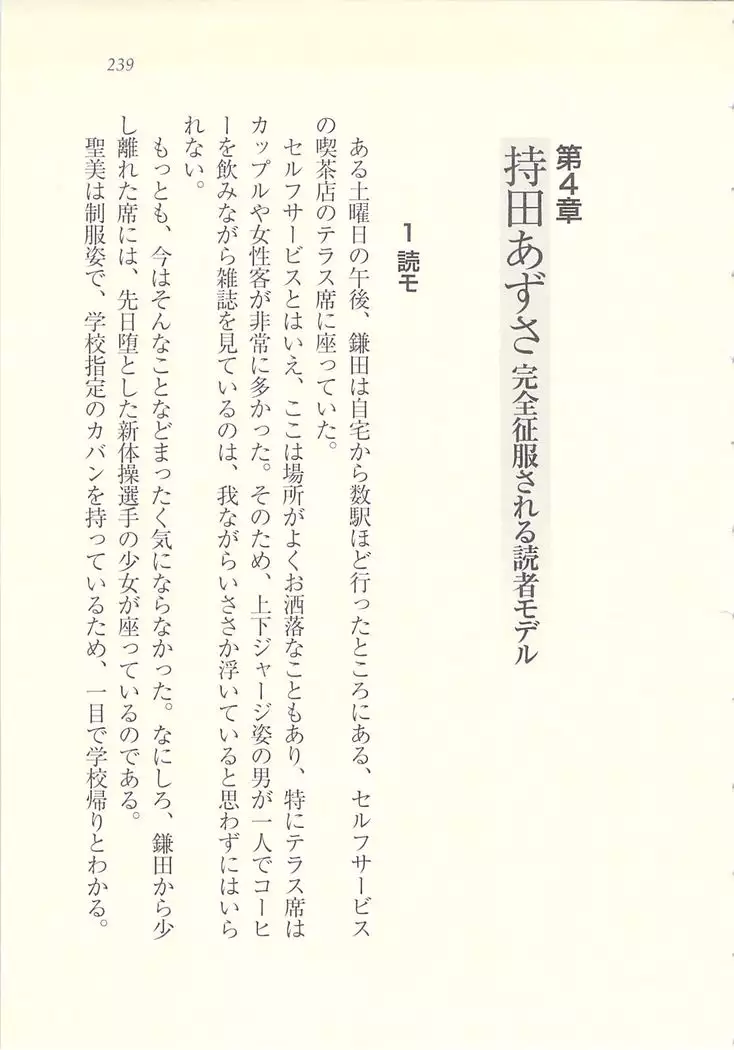 第4章
持田あずさ 完全征服される読者モデル
1 読モ
ある土曜日の午後、鎌田は自宅から数駅ほど行ったところにある、セルフサービス
の喫茶店のテラス席に座っていた。
セルフサービスとはいえ、ここは場所がよくお洒落なこともあり、特にテラス席は
カップルや女性客が非常に多かった。そのため、上下ジャージ姿の男が一人でコーヒ
ーを飲みながら雑誌を見ているのは、我ながらいささか浮いていると思わずにはいら
れない。
もっとも、今はそんなことなどまったく気にならなかった。なにしろ、鎌田から少
し離れた席には、先日堕とした新体操選手の少女が座っているのである。
聖美は制服姿で、学校指定のカバンを持っているため、一目で学校帰りとわかる。
239